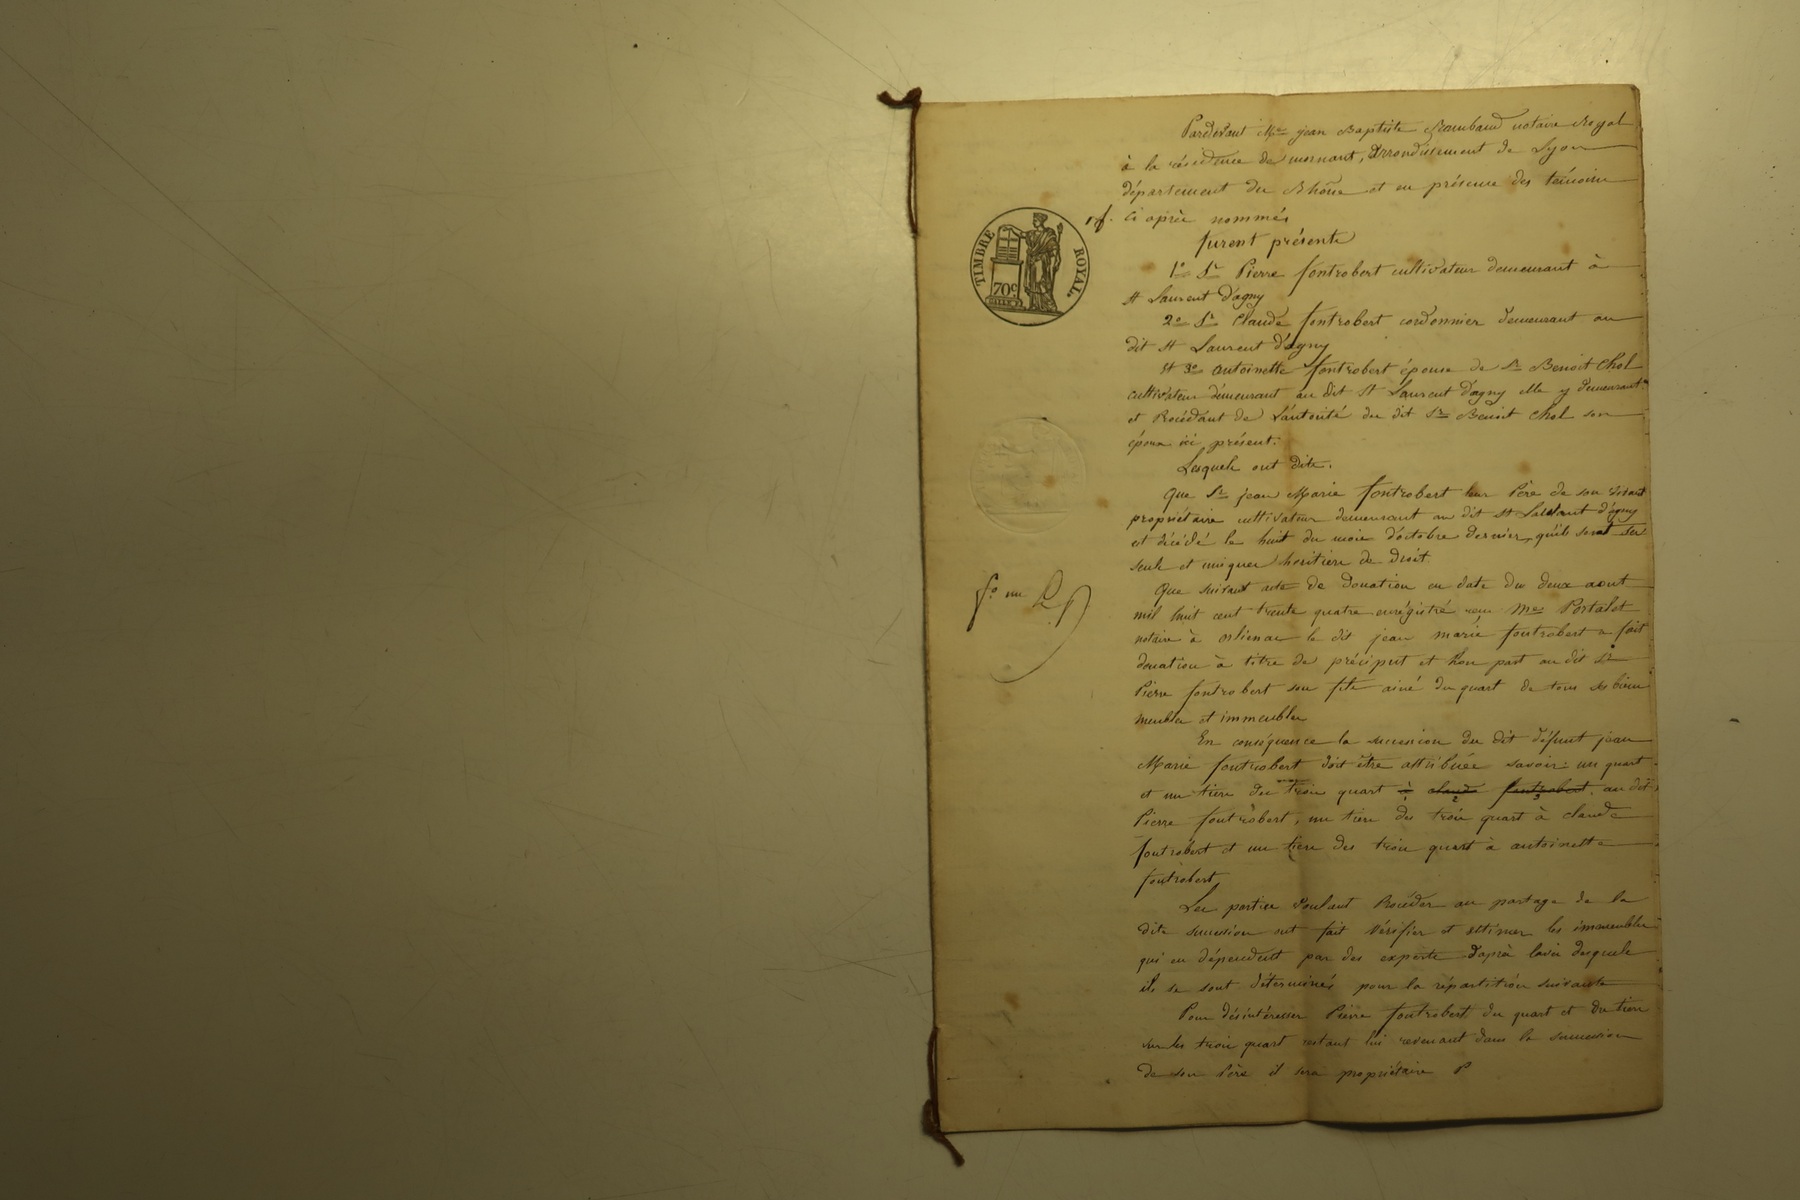 Pardevant Me jean Baptiste notaire Royal
à la résidence de mornant, Arrondissement de Lyon
département du Rhône et en présence des témoins
ci après nommés
furent présents
1° Sr Pierre fontrobert cultivateur demeurant à
st Laurent d'agny
2° Sr Claude fontrobert cordonnier demeurant au
dit st Laurent d'agny
et 3° antoinette fontrobert épouse de Sr Benoit Chol
cultivateur demeurant au dit St Laurent d'agny elle y demeurant
et Procédant de L'autorité du dit Sr Benoit Chol son
époux ici présent.
Lesquels ont dits.
Que Sr jean Marie fontrobert leur Père de son vivant
propriétaire cultivateur demeurant au dit st Laurent d'agny
est décédé le huit du mois d'octobre dernier, qu'ils sont ses
seuls et uniques héritiers de droit.
Que suivant acte de donation en date du deux aout
mil huit cent trente quatre enrégistré reçu Me Portalet
notaire à orliénas le dit jean marie fontrobert a fait
donation à titre de préciput et hors part au dit Sr
Pierre fontrobert son fils ainé du quart de tous ses biens
meubles et immeubles
En conséquence la succession du dit défunt jean
Marie fontrobert doit être attribuée savoir: un quart
et un tiers des trois quart à claude fontrobert. au dit
1 2 3
Pierre fontrobert, un tiers des trois quart à claude
fontrobert et un tiers des trois quart à antoinette
fontrobert,
Les parties voulant Procéder au partage de la
dite succession ont fait vérifier et estimer les immeubles
qui en dépendent par des experts d'après l'avis desquels
ils se sont déterminés pour la répartition suivante
Pour désintéresser Pierre fontrobert du quart et du tiers
sur les trois quart restant lui revenant dans la succession
de son Père il sera propriétaire P
TIMBRE ROYAL.
70c
fo un